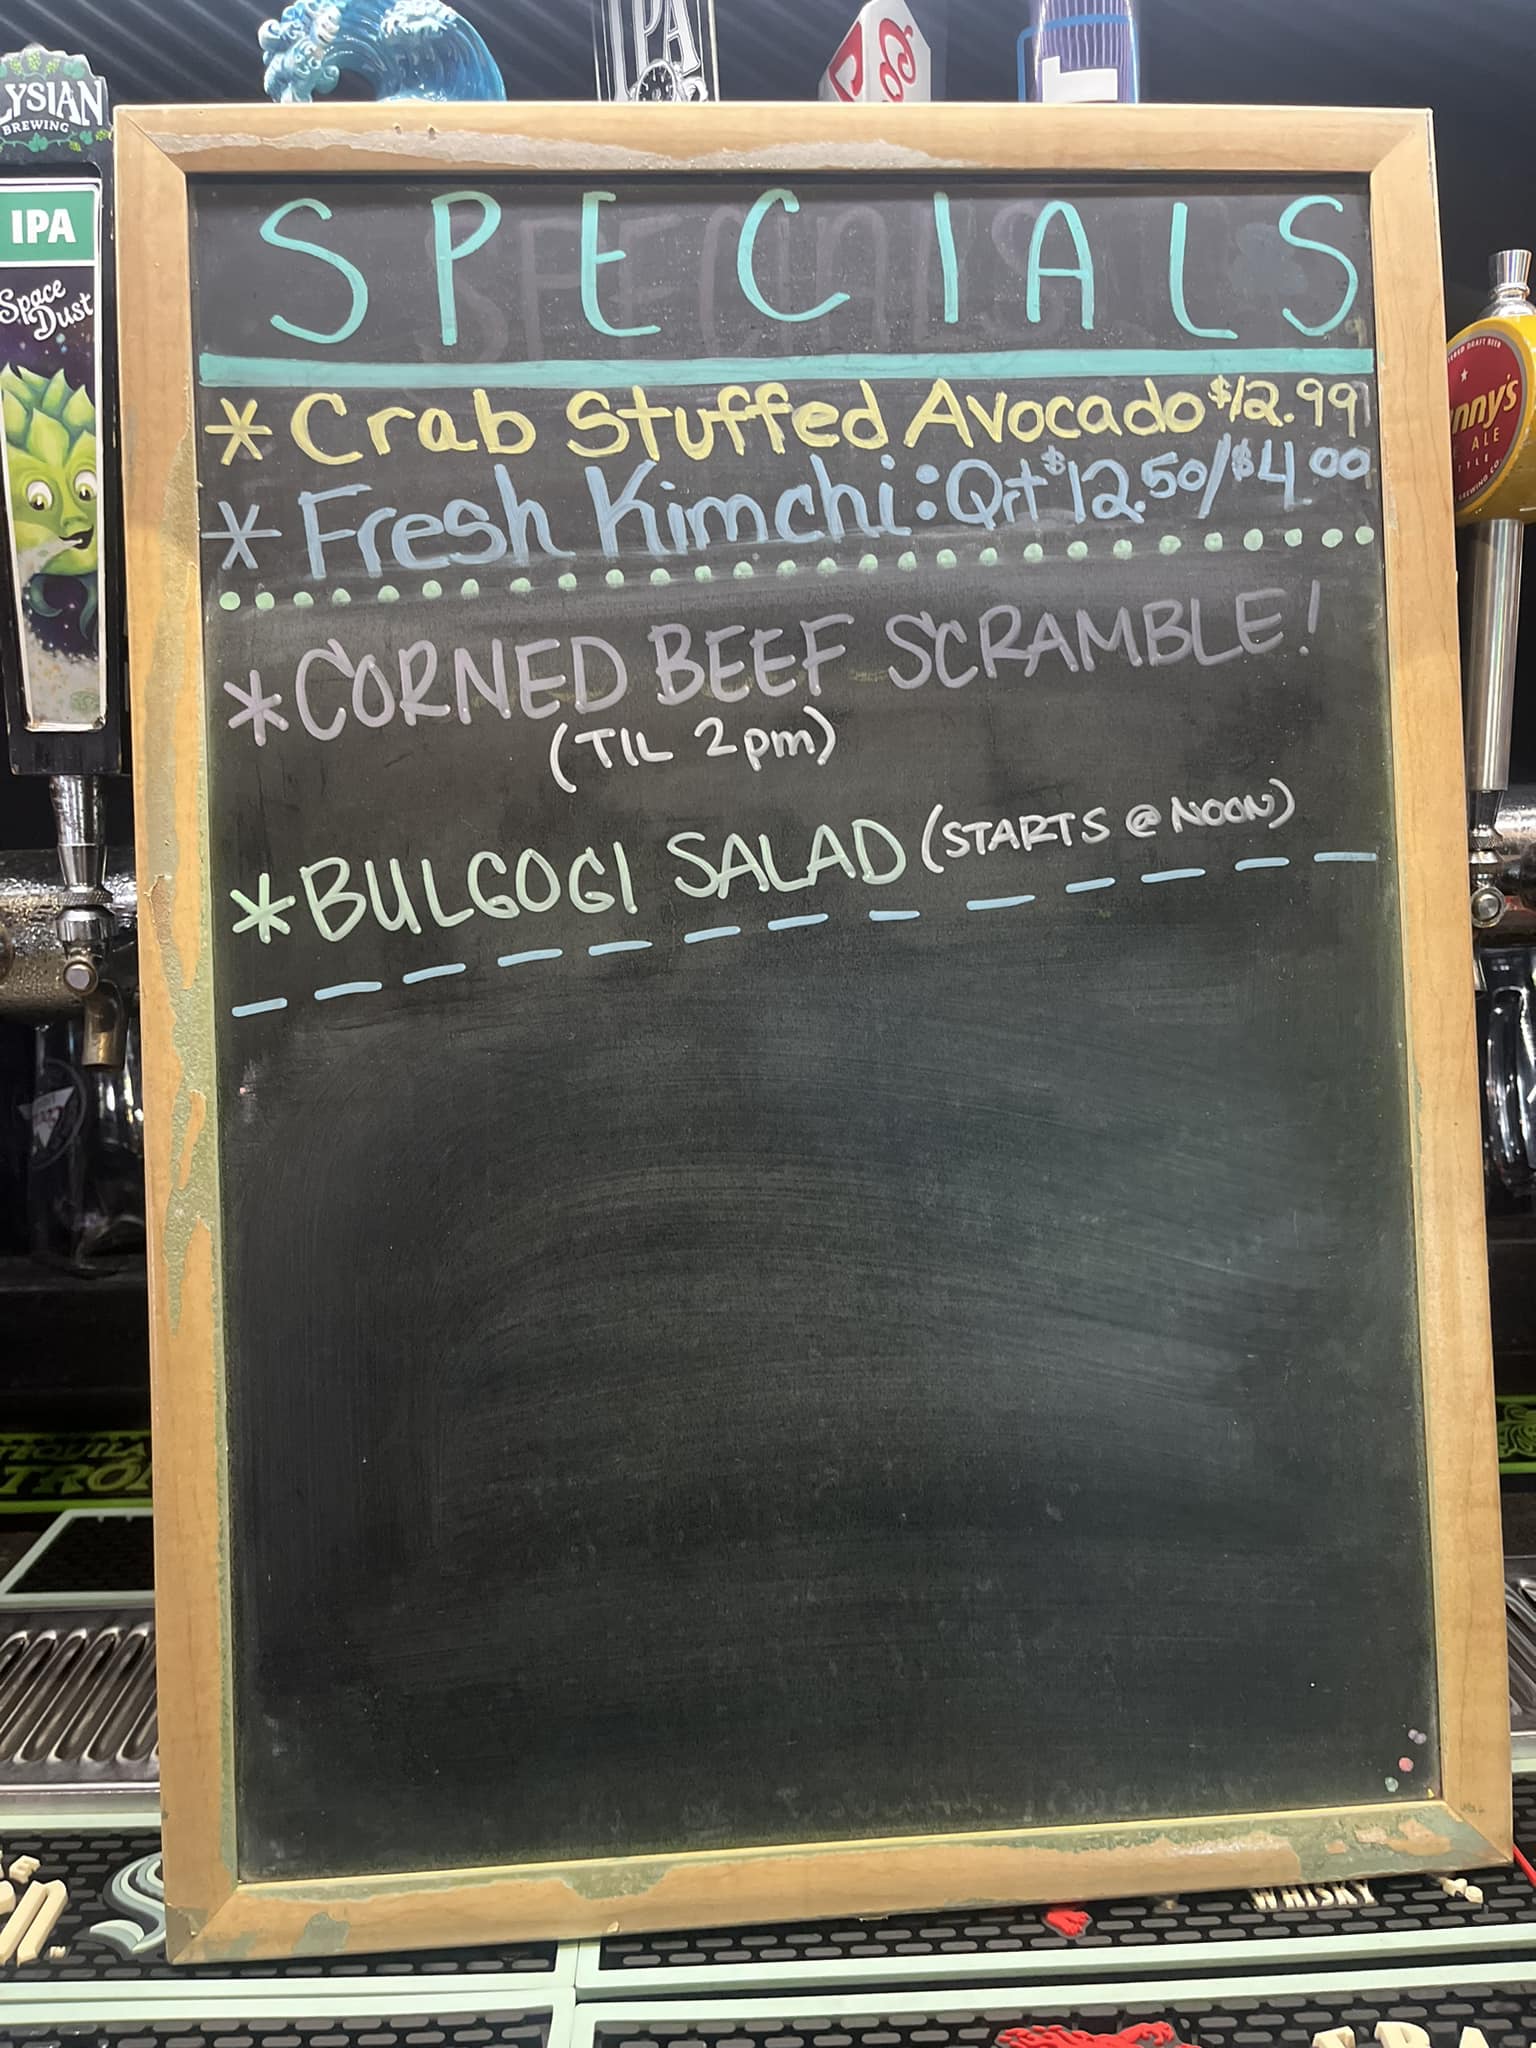 ELYSIAN
BREWING
IPA
Space
Dust
IPA
SPECIALS
* Crab Stuffed Avocado $12.99
* Fresh Kimchi: Qrt $12.50/$4.00
* CORNED BEEF SCRAMBLE!
(TIL 2pm)
* BULGOGI SALAD (STARTS @ NOON)
ALE
TEQUILA
WHISKY